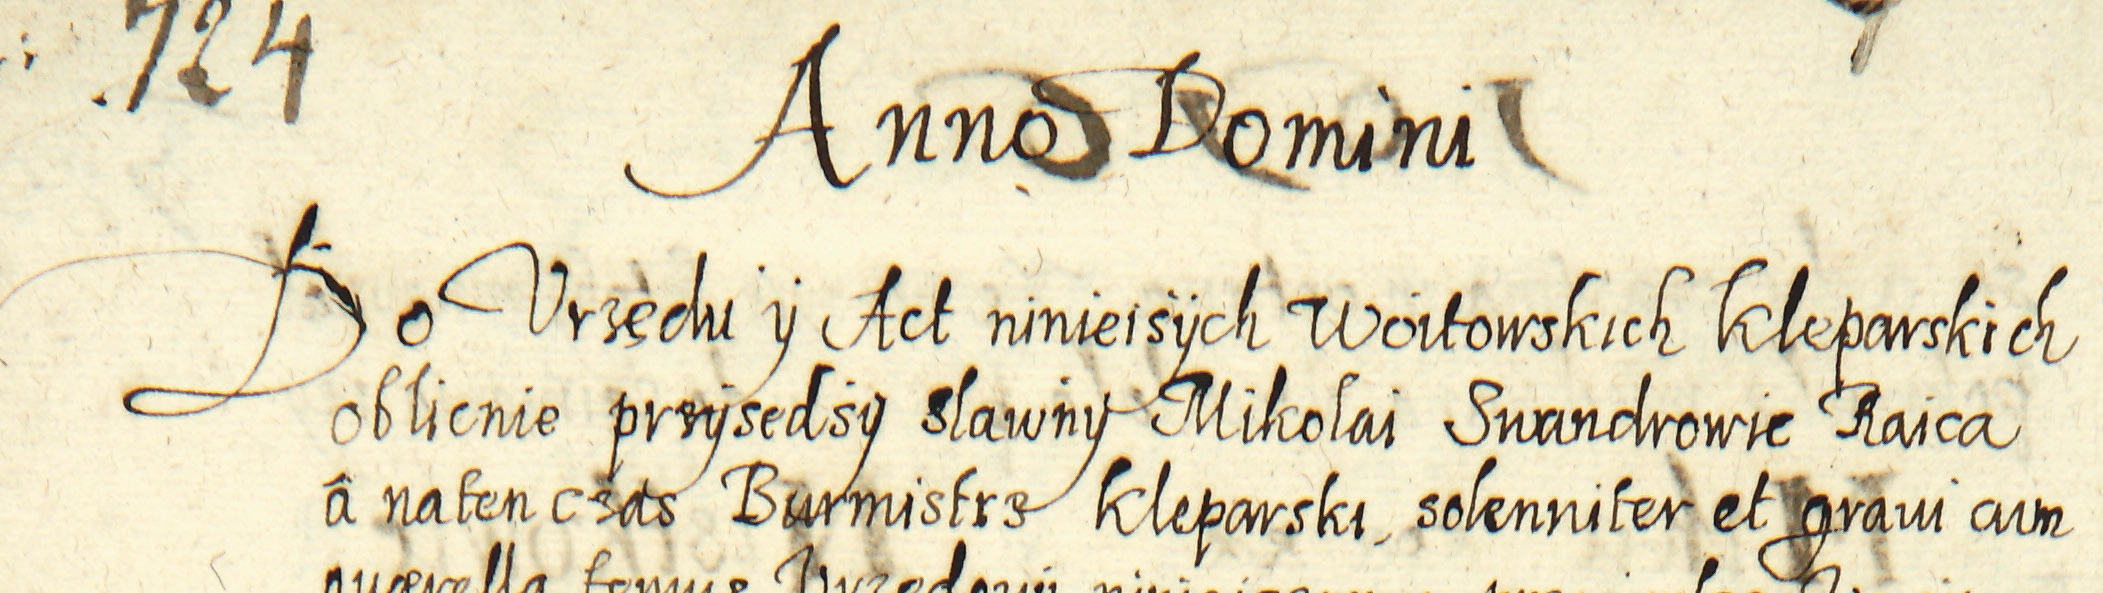 724
Anno Domini
Do Vrzędu ÿ Act ninieisÿch Woitowskich kleparskich
oblicnie przÿsedsÿ slawnÿ Mikolai Swandrowic Raica
â naten czas Burmistrz kleparski, solenniter et graui cum
quærella temuz Vrzędowi